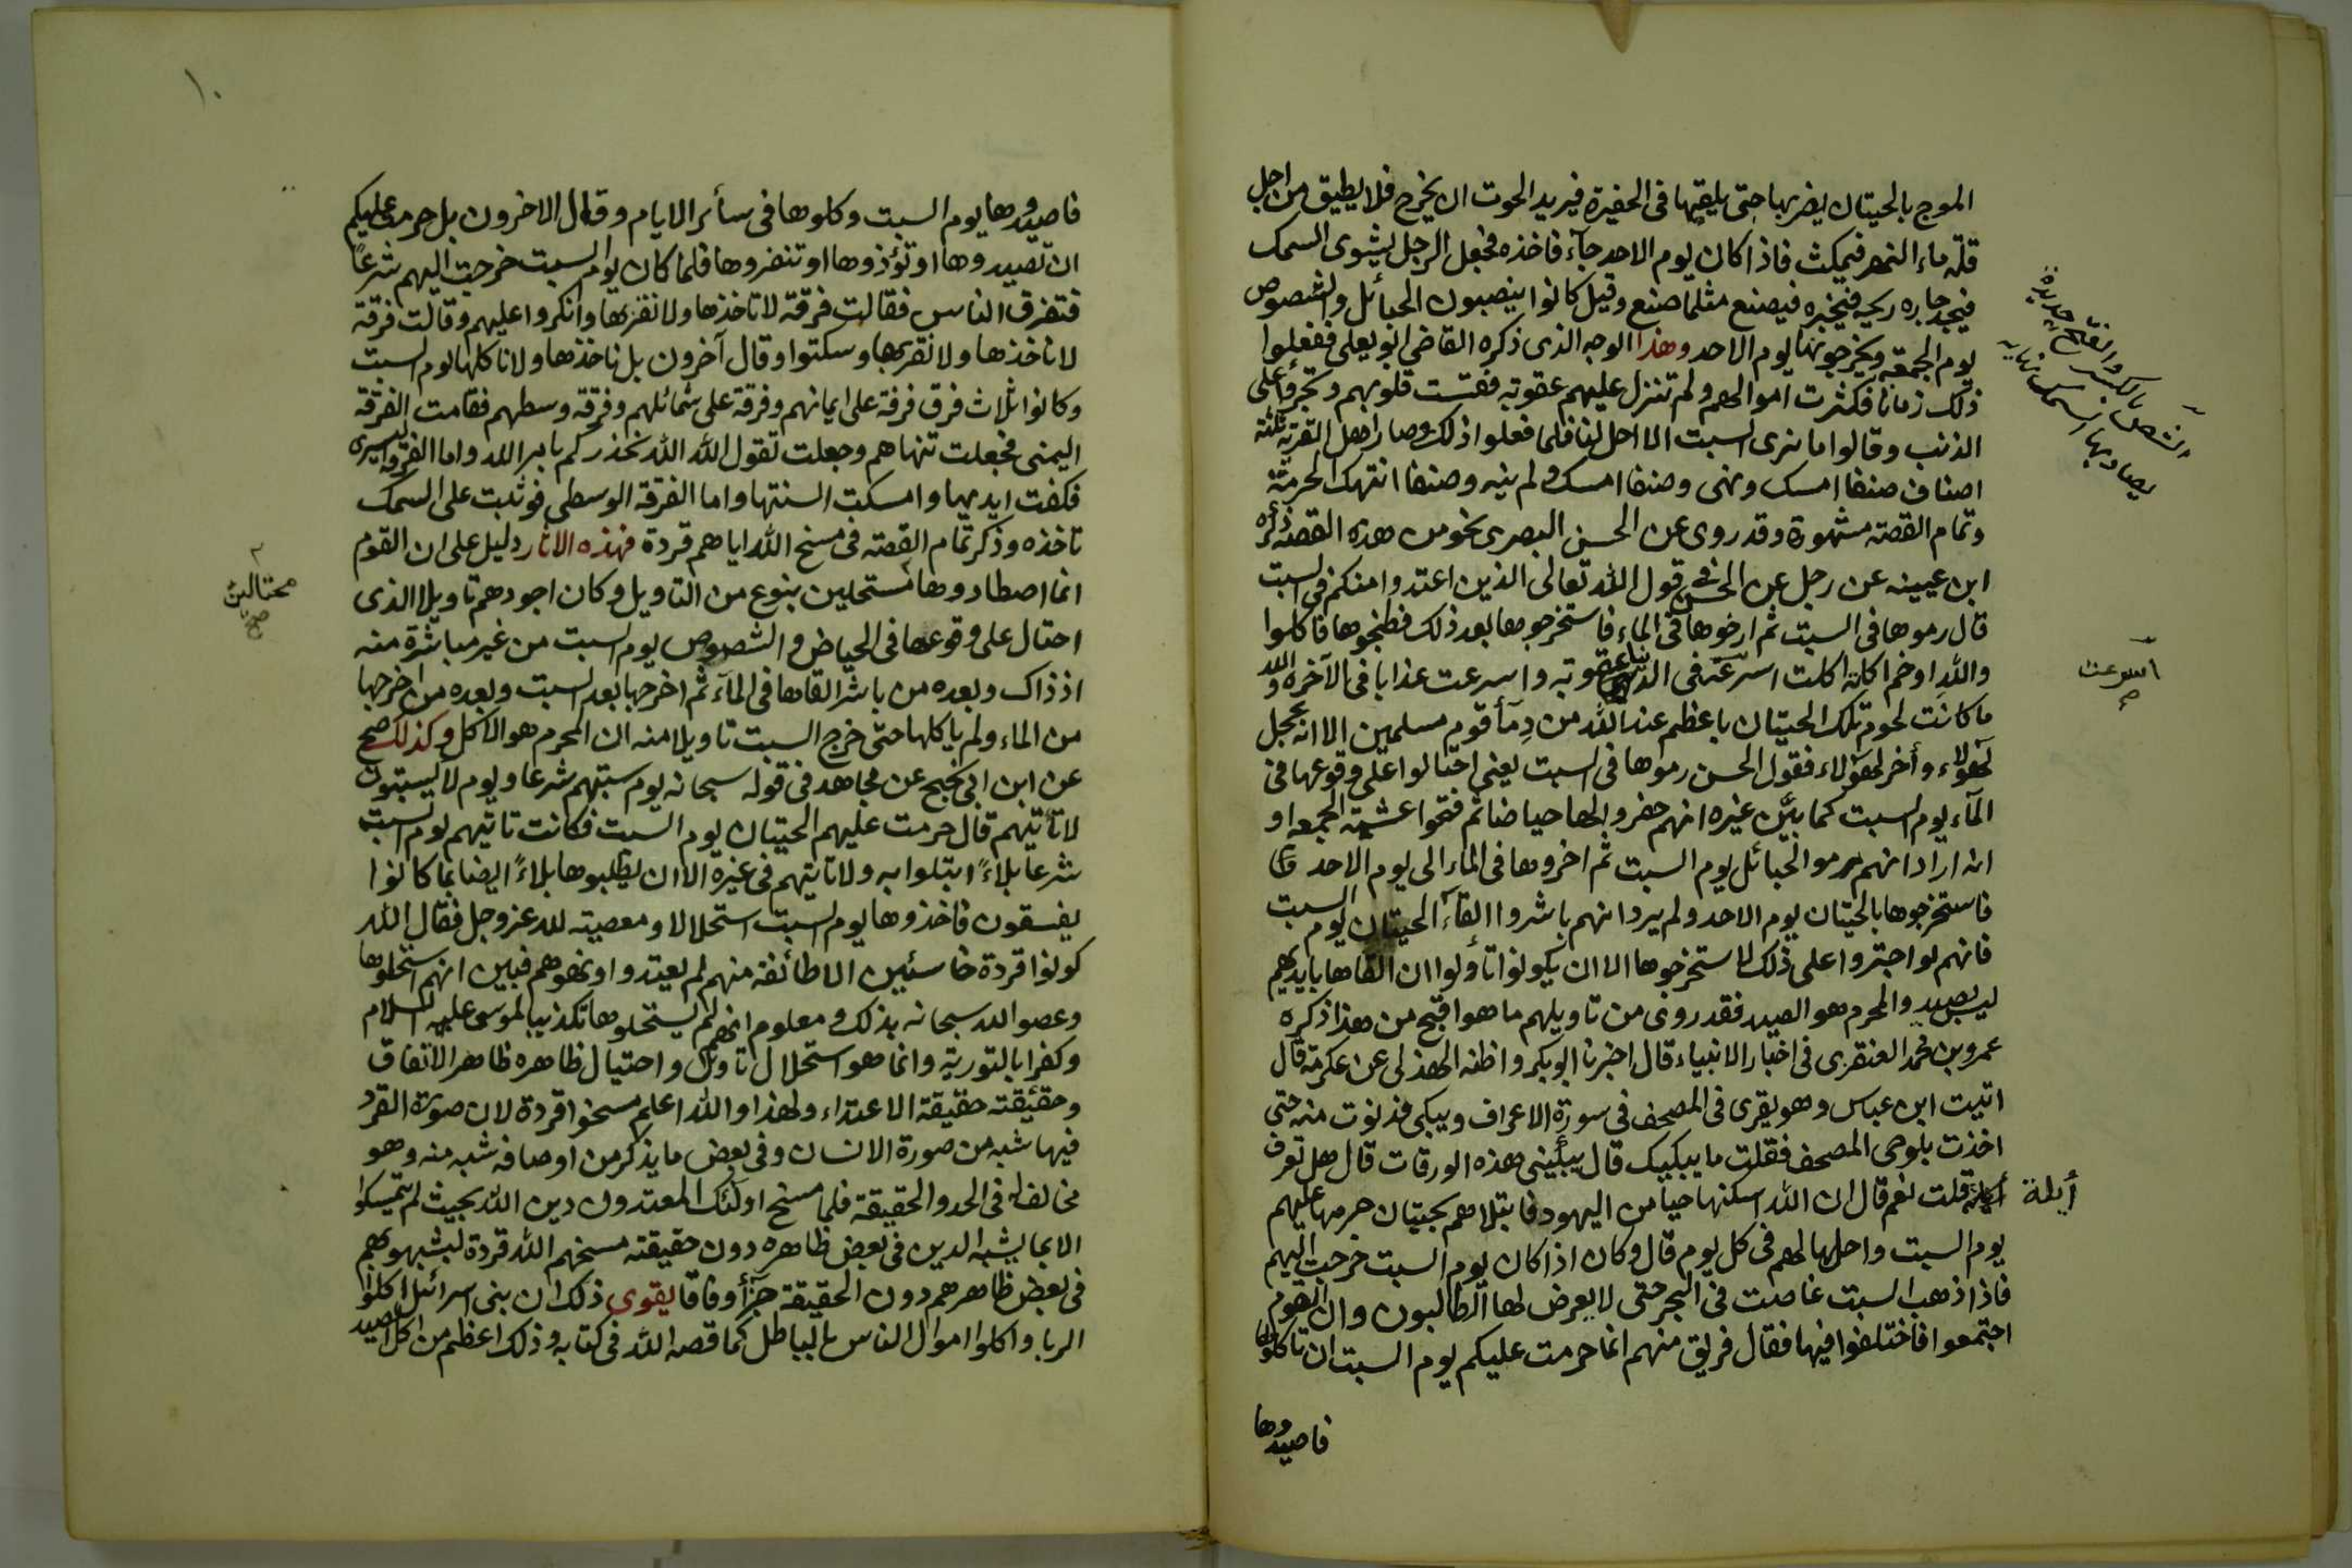 الموج بالحيتان يضربها حتى يلقيها فى الحفيرة فيريد الحوت ان يخرج فلا يطيق من اجل
قلة ماء النهر فيمكث فاذا كان يوم الاحد جآء فاخذه فجعل الرجل يشوى السمك
فيجد جاره ريحه فيخبره فيصنع مثلما صنع وقيل كانوا ينصبون الحبائل والشصوص
يوم الجمعة ويخرجونها يوم الاحد وهذا الوجه الذى ذكره القاضى ابو يعلى ففعلوا
ذلك زمانا فكثرت اموالهم ولم تنزل عليهم عقوبة فقست قلوبهم وتجرؤا على
الذنب وقالوا ما نرى السبت الا احل لنا فلما فعلوا ذلك وصار اهل القرية ثلثة
اصناف صنفا امسك ونهى وصنفا امسك ولم ينه وصنفا انتهك الحرمة
وتمام القصة مشهورة وقد روى عن الحسن البصرى نحو من هذه القصة ذكره
ابن عيينه عن رجل عن الحسن فى قول الله تعالى الذين اعتدوا منكم فى السبت
قال رموها فى السبت ثم ارخوها فى الماء فاستخرجوها بعد ذلك فطبخوها فاكلوا
والله اوخم اكلة اكلت اسرعت فى الدنيا عقوبة واسرعت عذابا فى الآخرة والله
ما كانت لحوم تلك الحيتان باعظم عند الله من دمآ قوم مسلمين الا انه عجل
لهؤلاء وأخر لهؤلاء فقول الحسن رموها فى السبت يعنى احتالوا على وقوعها فى
المآء يوم السبت كما بيّن غيره انهم حفروا لها حياضا ثم فتحوا عشية الجمعه او
انه اراد انهم رموا الحبائل يوم السبت ثم اخروها فى الماء الى يوم الاحد
فاستخرجوها بالحيتان يوم الاحد ولم يرد انهم باشروا القآء الحيتان يوم السبت
فانهم لو اجترؤا على ذلك لاستخرجوها الا ان يكونوا تأولوا ان القاها بايديهم
ليس بصيد والمحرم هو الصيد فقد روى من تاويلهم ما هو اقبح من هذا ذكره
عمرو بن محمد العنقرى فى اخبار الانبياء قال اخبرنا ابو بكر واظنه الهذلى عن عكرمة قال
اتيت ابن عباس وهو يقرى فى المصحف فى سورة الاعراف ويبكى فدنوت منه حتى
اخذت بلوحى المصحف فقلت ما يبكيك قال يبكينى هذه الورقات قال هل تعرف
أيلة قلت نعم قال ان الله اسكنها حيا من اليهود فابتلاهم بحيتان حرمها عليهم
يوم السبت واحلها لهم فى كل يوم قال وكان اذا كان يوم السبت خرجت اليهم
فاذا ذهب السبت غاصت فى البحر حتى لا يعرض لها الطالبون وان القوم
اجتمعوا فاختلفوا فيها فقال فريق منهم انما حرمت عليكم يوم السبت ان تاكلوها
فاصيدوها
الشص بالكسر والفتح حديدة
يصاد بها السمك نهايه
اسرعت
أيلة
١٠
فاصيدوها يوم السبت وكلوها فى سأئر الايام وقال الاخرون بل حرمت عليكم
ان تصيدوها او تؤذوها او تنفروها فلما كان يوم السبت خرجت اليهم شرعاً
فتفرق الناس فقالت فرقة لا تاخذها ولا نقربها وانكروا عليهم وقالت فرقة
لا ناخذها ولا نقربها وسكتوا وقال آخرون بل ناخذها ولا ناكلها يوم السبت
وكانوا ثلاث فرق فرقة على ايمانهم وفرقة على شمائلهم وفرقة وسطهم فقامت الفرقة
اليمنى فجعلت تنهاهم وجعلت تقول الله الله نحذركم باس الله واما الفرقة اليسرى
فكفت ايديها وامسكت السنتها واما الفرقة الوسطى فوثبت على السمك
تاخذه وذكر تمام القصة فى مسخ الله اياهم قردة فهذه الاثار دليل على ان القوم
انما اصطادوها مستحلين بنوع من التاويل وكان اجودهم تاويلا الذى
احتال على وقوعها فى الحياض والشصوص يوم السبت من غير مباشرة منه
اذ ذاك وبعده من باشر القاها فى المآء ثم اخرجها بعد السبت وبعده من اخرجها
من الماء ولم ياكلها حتى خرج السبت تاويلا منه ان المحرم هو الاكل وكذلك صح
عن ابن ابى نجيح عن مجاهد فى قوله سبحانه يوم سبتهم شرعا ويوم لا يسبتون
لا تأتيهم قال حرمت عليهم الحيتان يوم السبت فكانت تاتيهم يوم السبت
شرعا بلاءً ابتلوا به ولا تاتيهم فى غيره الا ان يطلبوها بلاءً ايضا بما كانوا
يفسقون فاخذوها يوم السبت استحلالا ومعصية لله عز وجل فقال الله
كونوا قردة خاسئين الا طائفة منهم لم يعتدوا ونهوهم فبين انهم استحلوها
وعصوا الله سبحانه بذلك ومعلوم انهم لم يستحلوها تكذيبا لموسى عليه السلام
وكفرا بالتورية وانما هو استحلال تاويل واحتيال ظاهره ظاهر الاتفاق
وحقيقته حقيقة الاعتداء ولهذا والله اعلم مسخوا قردة لان صورة القرد
فيها شبه من صورة الانسان وفى بعض ما يذكر من اوصافه شبه منه وهو
مخالف له فى الحد والحقيقة فلما مسخ اولئك المعتدون دين الله بحيث لم يتمسكوا
الا بما يشبه الدين فى بعض ظاهره دون حقيقته مسخهم الله قردة ليشبهوهم
فى بعض ظاهرهم دون الحقيقة جزأ وفاقا يقوى ذلك ان بنى اسرائل اكلوا
الربا واكلوا اموال الناس بالباطل كما قصه الله فى كتابه وذلك اعظم من اكل الصيد
محتالين
صح